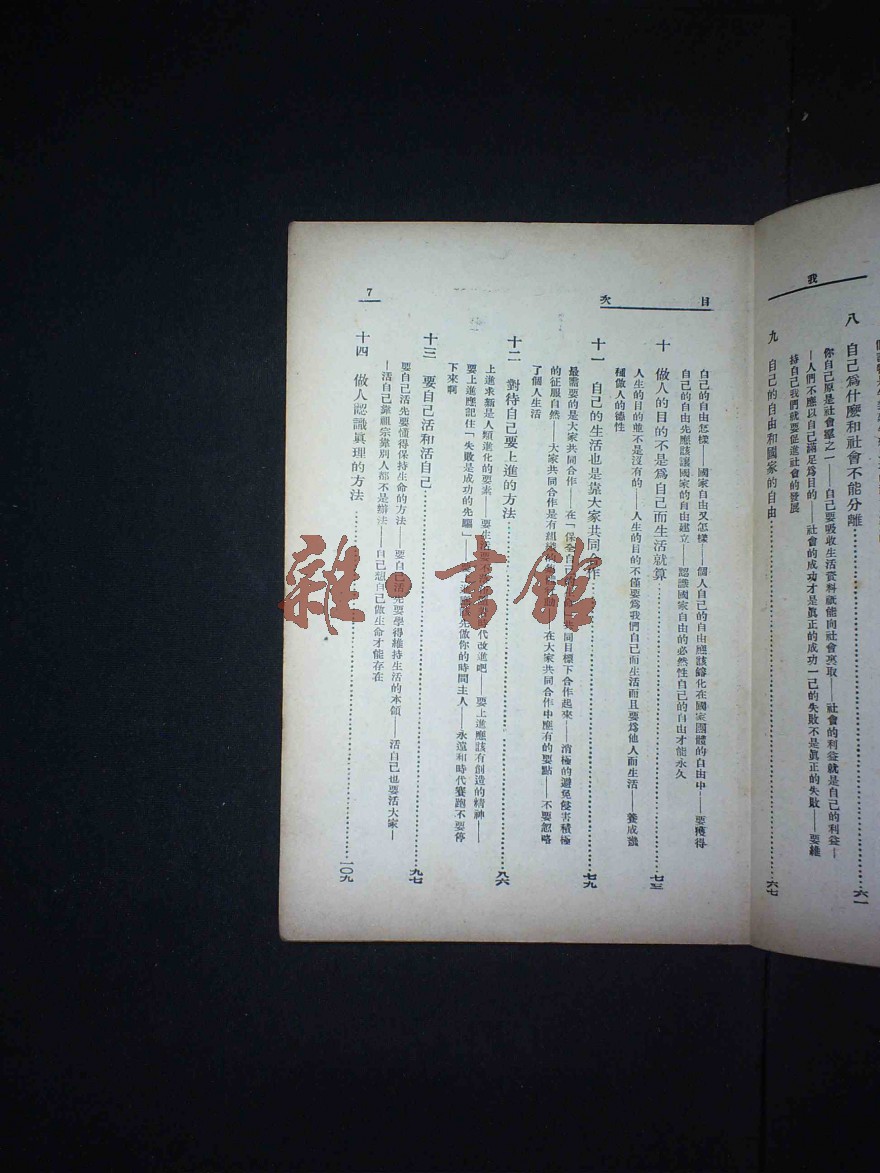 我
八 自己爲什麼和社會不能分離……六一
你自己原是社會羣之一——自己要吸收生活資料祗能向社會裏取——社會的利益就是自己的利益—
—人們不應以自己滿足爲目的——社會的成功才是眞正的成功一己的失敗不是眞正的失敗——要維
持自己我們就要促進社會的發展
九 自己的自由和國家的自由……六七
目次
自己的自由怎樣——國家自由又怎樣——個人自己的自由應該鎔化在國家團體的自由中——要獲得
自己的自由先應該讓國家的自由建立——認識國家自由的必然性自己的自由才能永久
十 做人的目的不是爲自己而生活就算……七三
人生的目的並不是沒有的——人生的目的不僅要爲我們自己而生活而且要爲他人而生活——養成識
種做人的德性
十一 自己的生活也是靠大家共同合作……七九
最需要的是大家共同合作——在「保全自己的 共同目標下合作起來——消極的避免侵害積極
的征服自然——大家共同合作是有組織的 在大家共同合作中應有的要點——不要忽略
了個人生活
十二 對待自己要上進的方法……八六
上進求新是人類進化的要素——要生活要 時代改進吧——要上進應該有創造的精神——
要上進應記住「失敗是成功的先驅」—— 先做你的時間主人——永遠和時代賽跑不要停
下來啊
十三 要自己活和活自己……九七
要自己活先要懂得保持生命的方法——要自己活先要學得維持生活的本領——活自己也要活大家—
—活自己靠祖宗靠別人都不是辦法——自己想自己做生命才能存在
十四 做人認識眞理的方法……一〇九
7
雜·書館